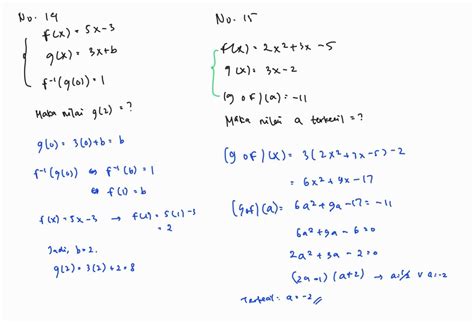 No. 14
f(x) = 5x-3
g(x) = 3x+b
f⁻¹(g(0)) = 1
Maka nilai g(2) = ?
g(0) = 3(0)+b = b
f⁻¹(g(0)) ⇔ f⁻¹(b) = 1
⇔ f(1) = b
f(x) = 5x-3 → f(1) = 5(1)-3
= 2
Jadi, b=2.
g(2) = 3(2)+2=8
No. 15
f(x) = 2x²+3x-5
g(x) = 3x-2
(g o f)(a) = -11
Maka nilai a terkecil = ?
(g o f)(x) = 3(2x²+3x-5)-2
= 6x²+9x-17
(g o f)(a) = 6a²+9a-17 = -11
6a²+9a-6=0
2a²+3a-2=0
(2a-1)(a+2) → a=1/2 v a=-2
Terkecil: a=-2